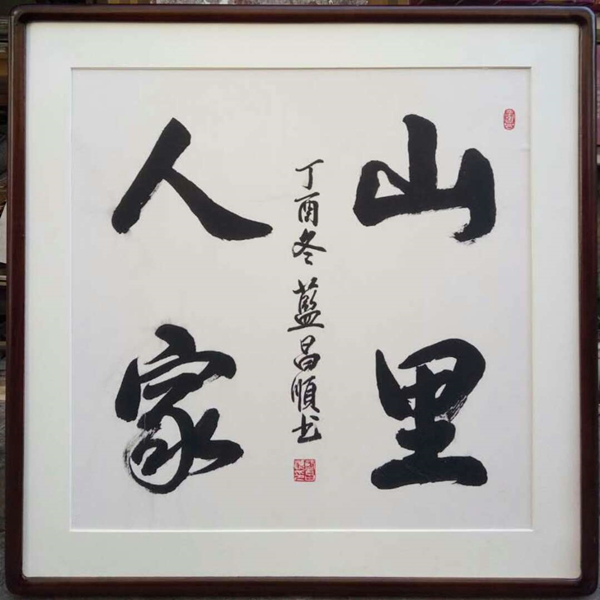 山里
人家
丁酉冬藍昌順书